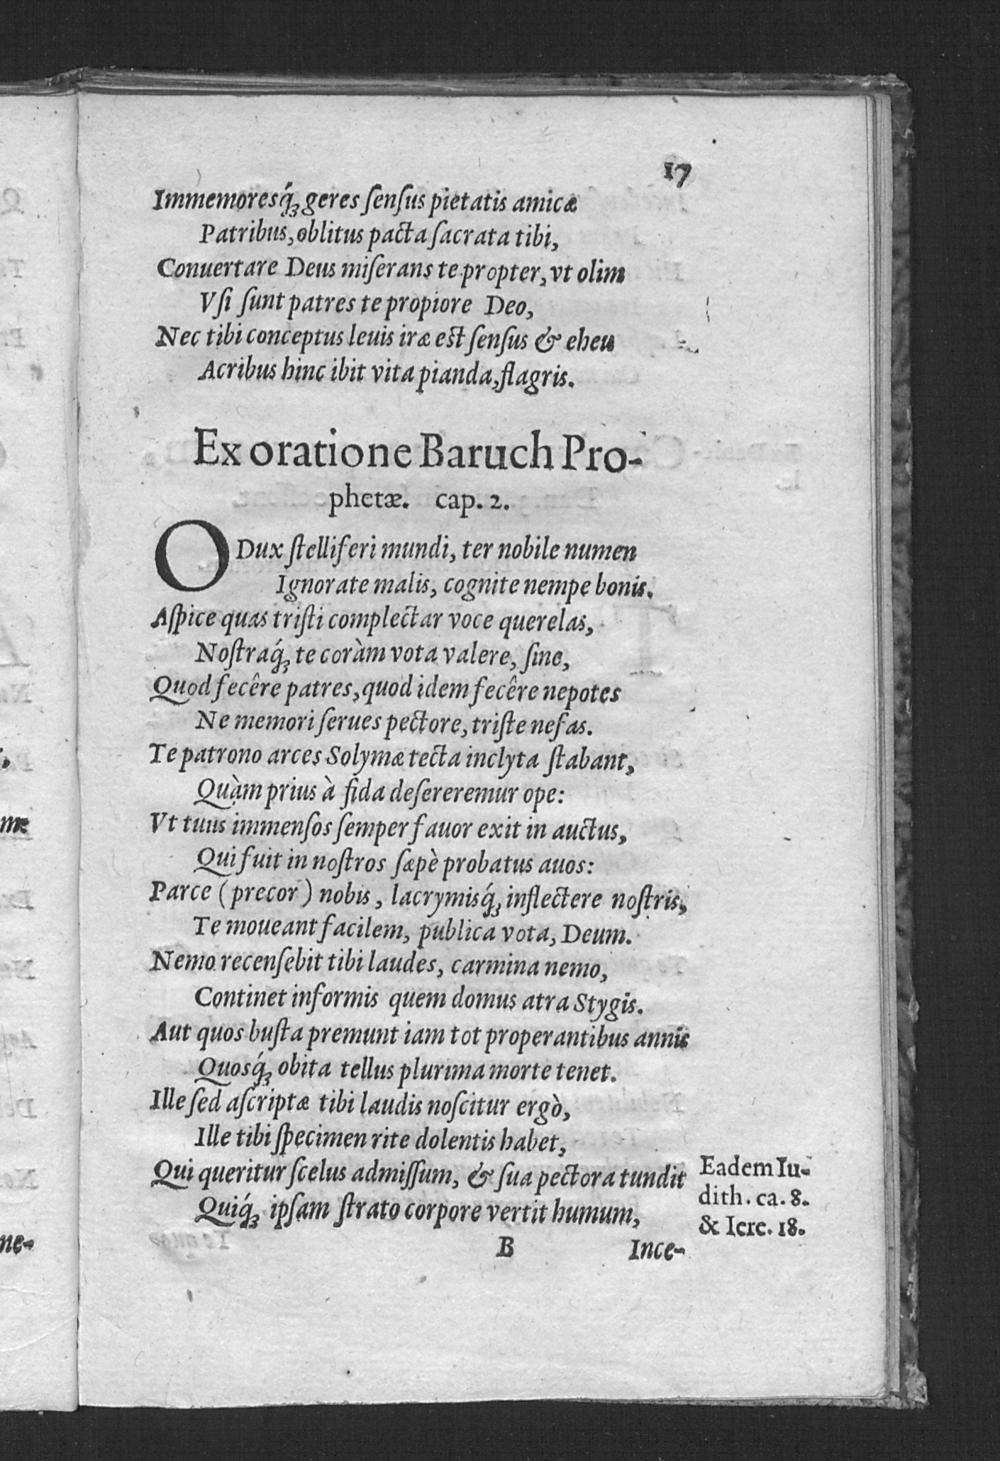 17
Immemoresq́ꝫ geres ſenſus pietatis amicæ
Patribus, oblitus pacta ſacrata tibi,
Conuertare Deus miſerans te propter, vt olim
Vſi ſunt patres te propiore Deo,
Nec tibi conceptus leuis iræ est ſenſus & eheu
Acribus hinc ibit vita pianda, flagris.
Ex oratione Baruch Pro-
phetæ. cap. 2.
O Dux ſtelliferi mundi, ter nobile numen
Ignorate malis, cognite nempe bonis.
Aſpice quas triſti complectar voce querelas,
Noſtraq́ꝫ te coràm vota valere, ſine,
Quod fecêre patres, quod idem fecêre nepotes
Ne memori ſerues pectore, triſte nefas.
Te patrono arces Solymæ tecta inclyta ſtabant,
Quàm prius à fida deſereremur ope:
Vt tuus immenſos ſemper fauor exit in auctus,
Qui fuit in noſtros ſæpè probatus auos:
Parce (precor) nobis, lacrymisq́ꝫ inflectere noſtris,
Te moueant facilem, publica vota, Deum.
Nemo recenſebit tibi laudes, carmina nemo,
Continet informis quem domus atra Stygis.
Aut quos buſta premunt iam tot properantibus annis
Quosq́ꝫ obita tellus plurima morte tenet.
Ille ſed aſcriptæ tibi laudis noſcitur ergò,
Ille tibi ſpecimen rite dolentis habet,
Qui queritur ſcelus admiſſum, & ſua pectora tundit
Quiq́ꝫ ipſam ſtrato corpore vertit humum,
Eadem Iu-
dith. ca. 8.
& Iere. 18.
B Ince-